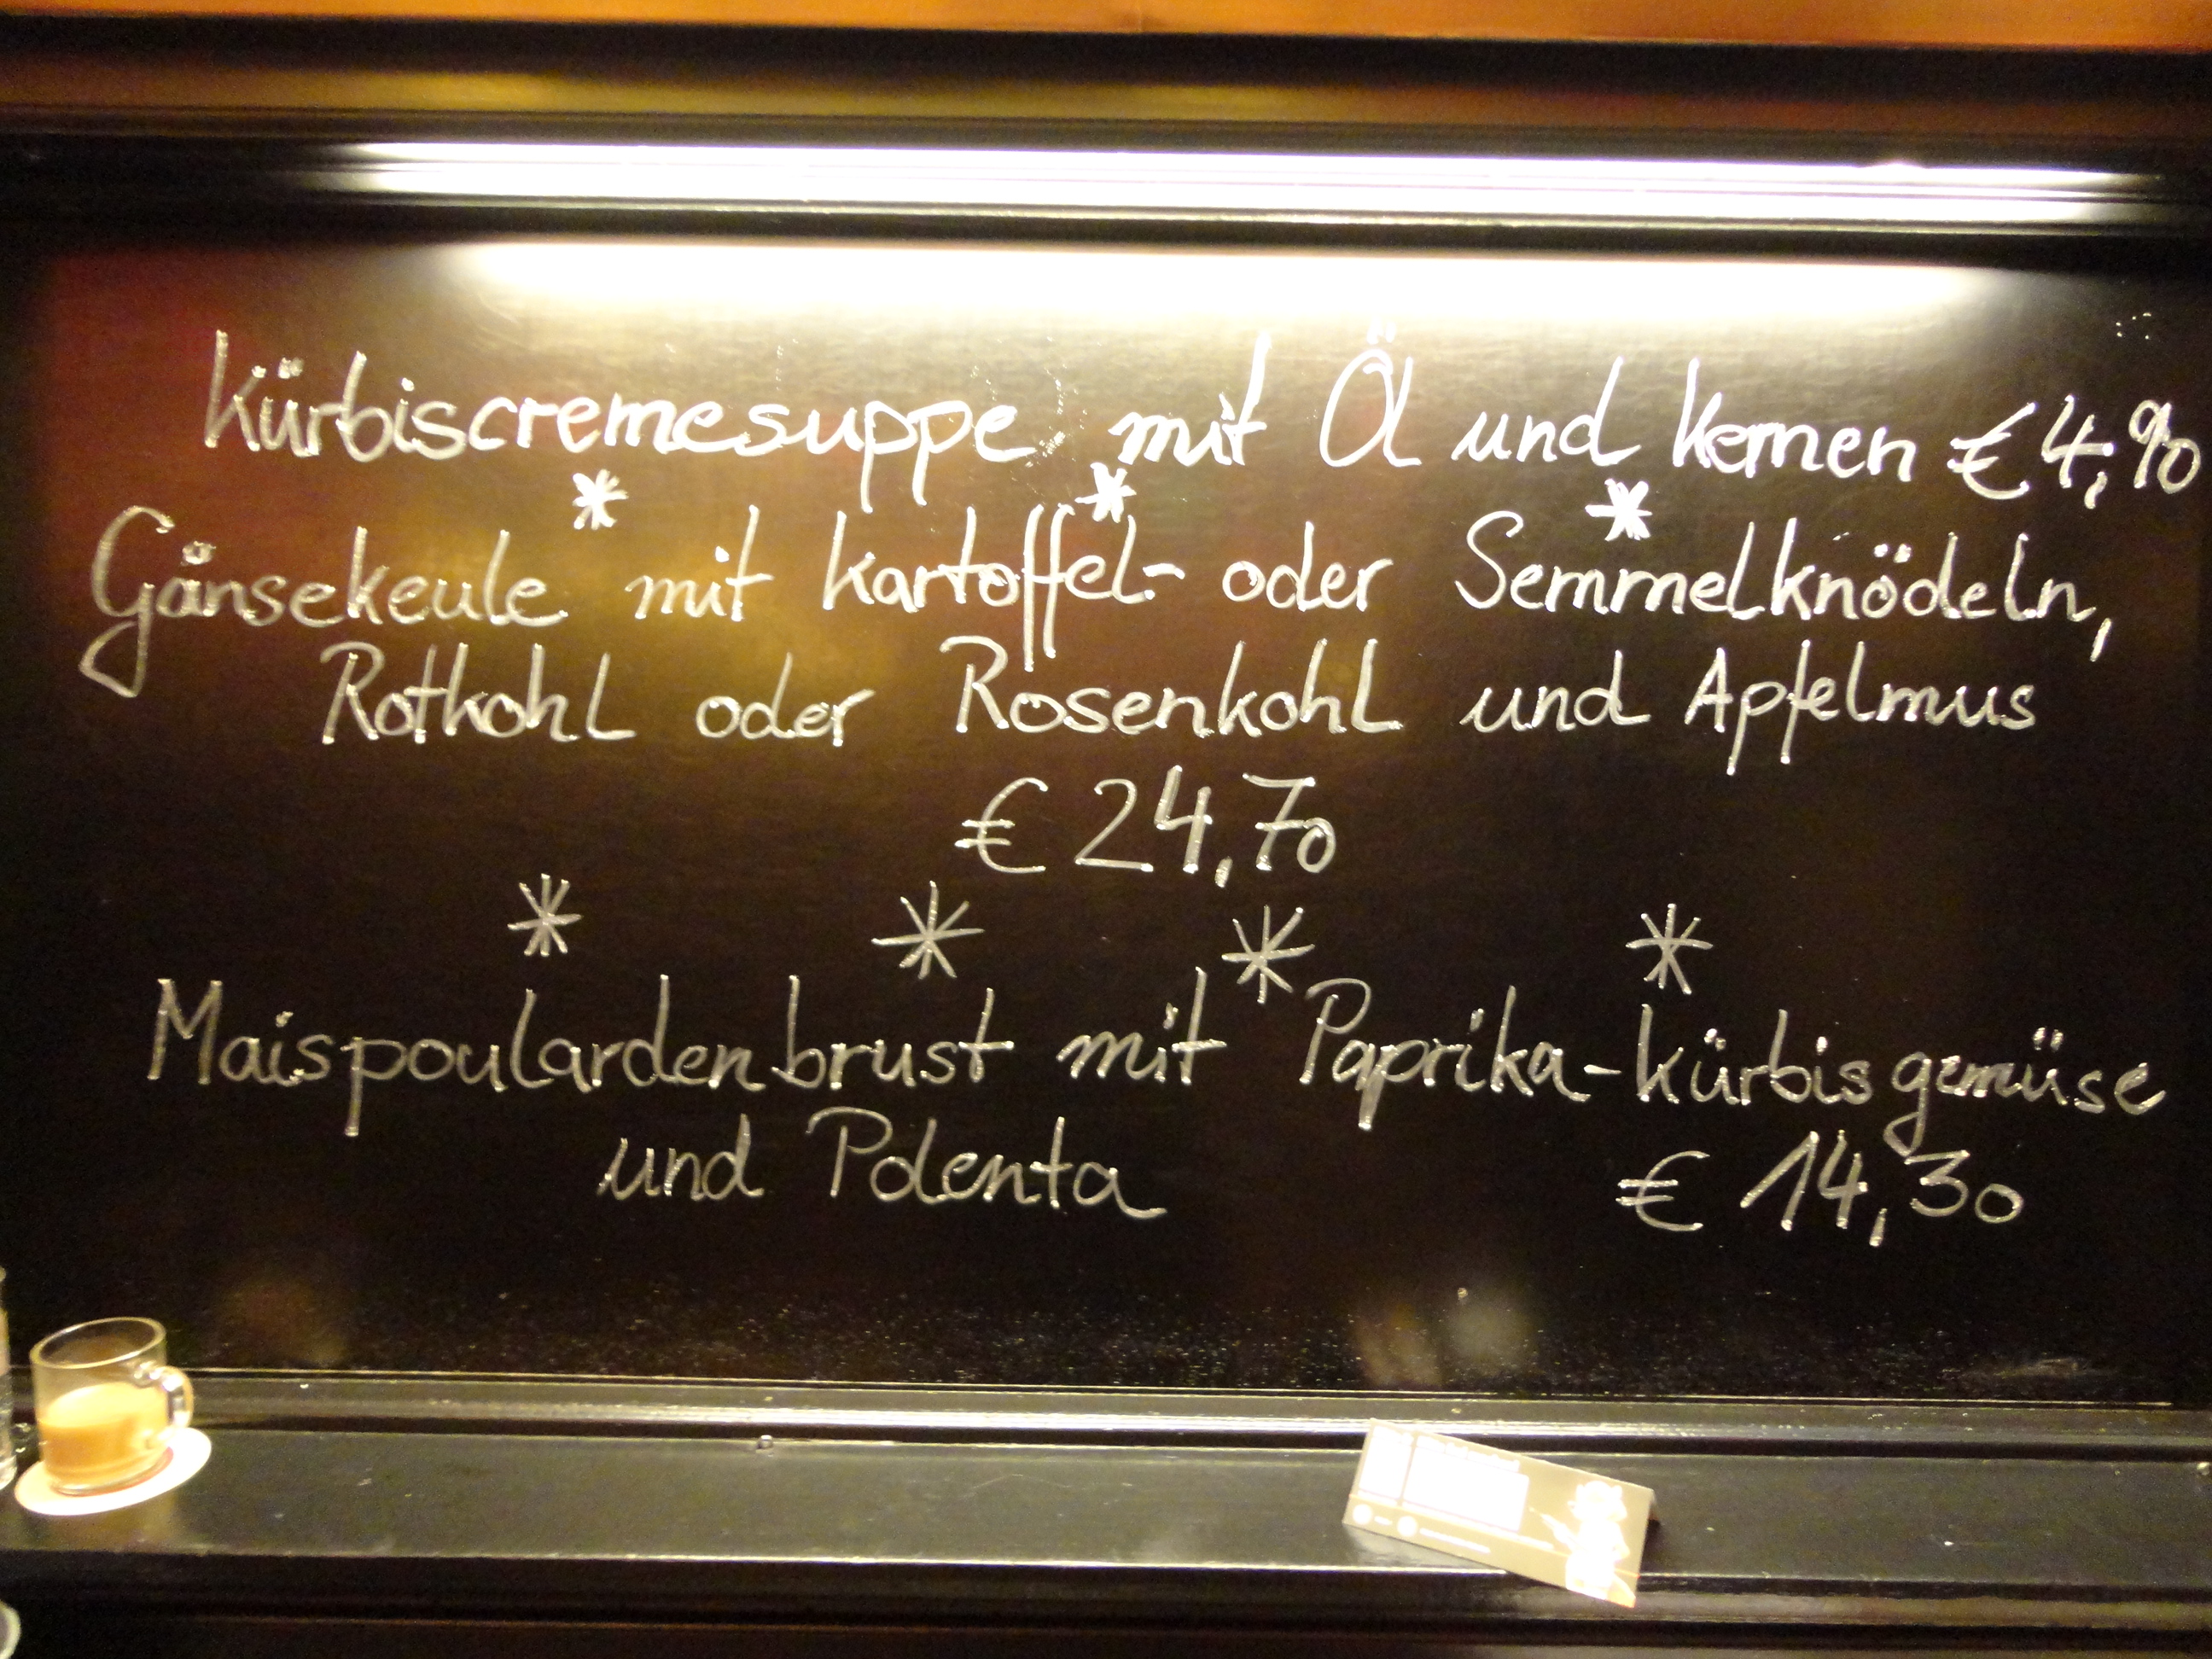 Kürbiscremesuppe mit Öl und Kernen € 4,90
* * *
Gänsekeule mit Kartoffel- oder Semmelknödeln,
Rotkohl oder Rosenkohl und Apfelmus
€ 24,70
* * * *
Maispoulardenbrust mit Paprika-Kürbisgemüse
und Polenta € 14,30